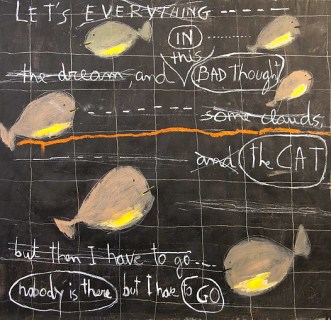 LET'S EVERYTHING
IN
this
the dream, and BAD Though
some clouds,
and the CAT
but then I have to go...
nobody is there but I have to GO